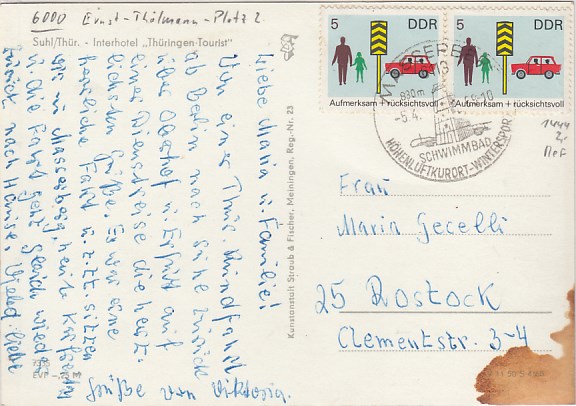 6000 Ernst-Thälmann-Platz 2
Suhl/Thür. - Interhotel „Thüringen-Tourist"
Liebe Maria u. Familie!
Von einer Thür. Rundfahrt
ab Berlin nach Suhl zurück
über Oberhof u. Erfurt auf
einer Dienstreise die herz-
lichsten Grüße. Es war eine
herrliche Fahrt u. z. Zt. sitzen
wir in Masserberg, heute
u. die Fahrt geht gleich wieder
zurück nach Hause. Liebe
Grüße von Viktoria.
EVP
Kunstanstalt Straub & Fischer, Meiningen, Reg.-Nr. 23
5 DDR
Aufmerksam + rücksichtsvoll
5 DDR
Aufmerksam + rücksichtsvoll
MASSERBERG
830m
-6.4.
-10
SCHWIMMBAD
HÖHENLUFTKURORT-WINTERSPORT
1444
Frau
Maria Gecelli
25 Rostock
Clementstr. 3-4